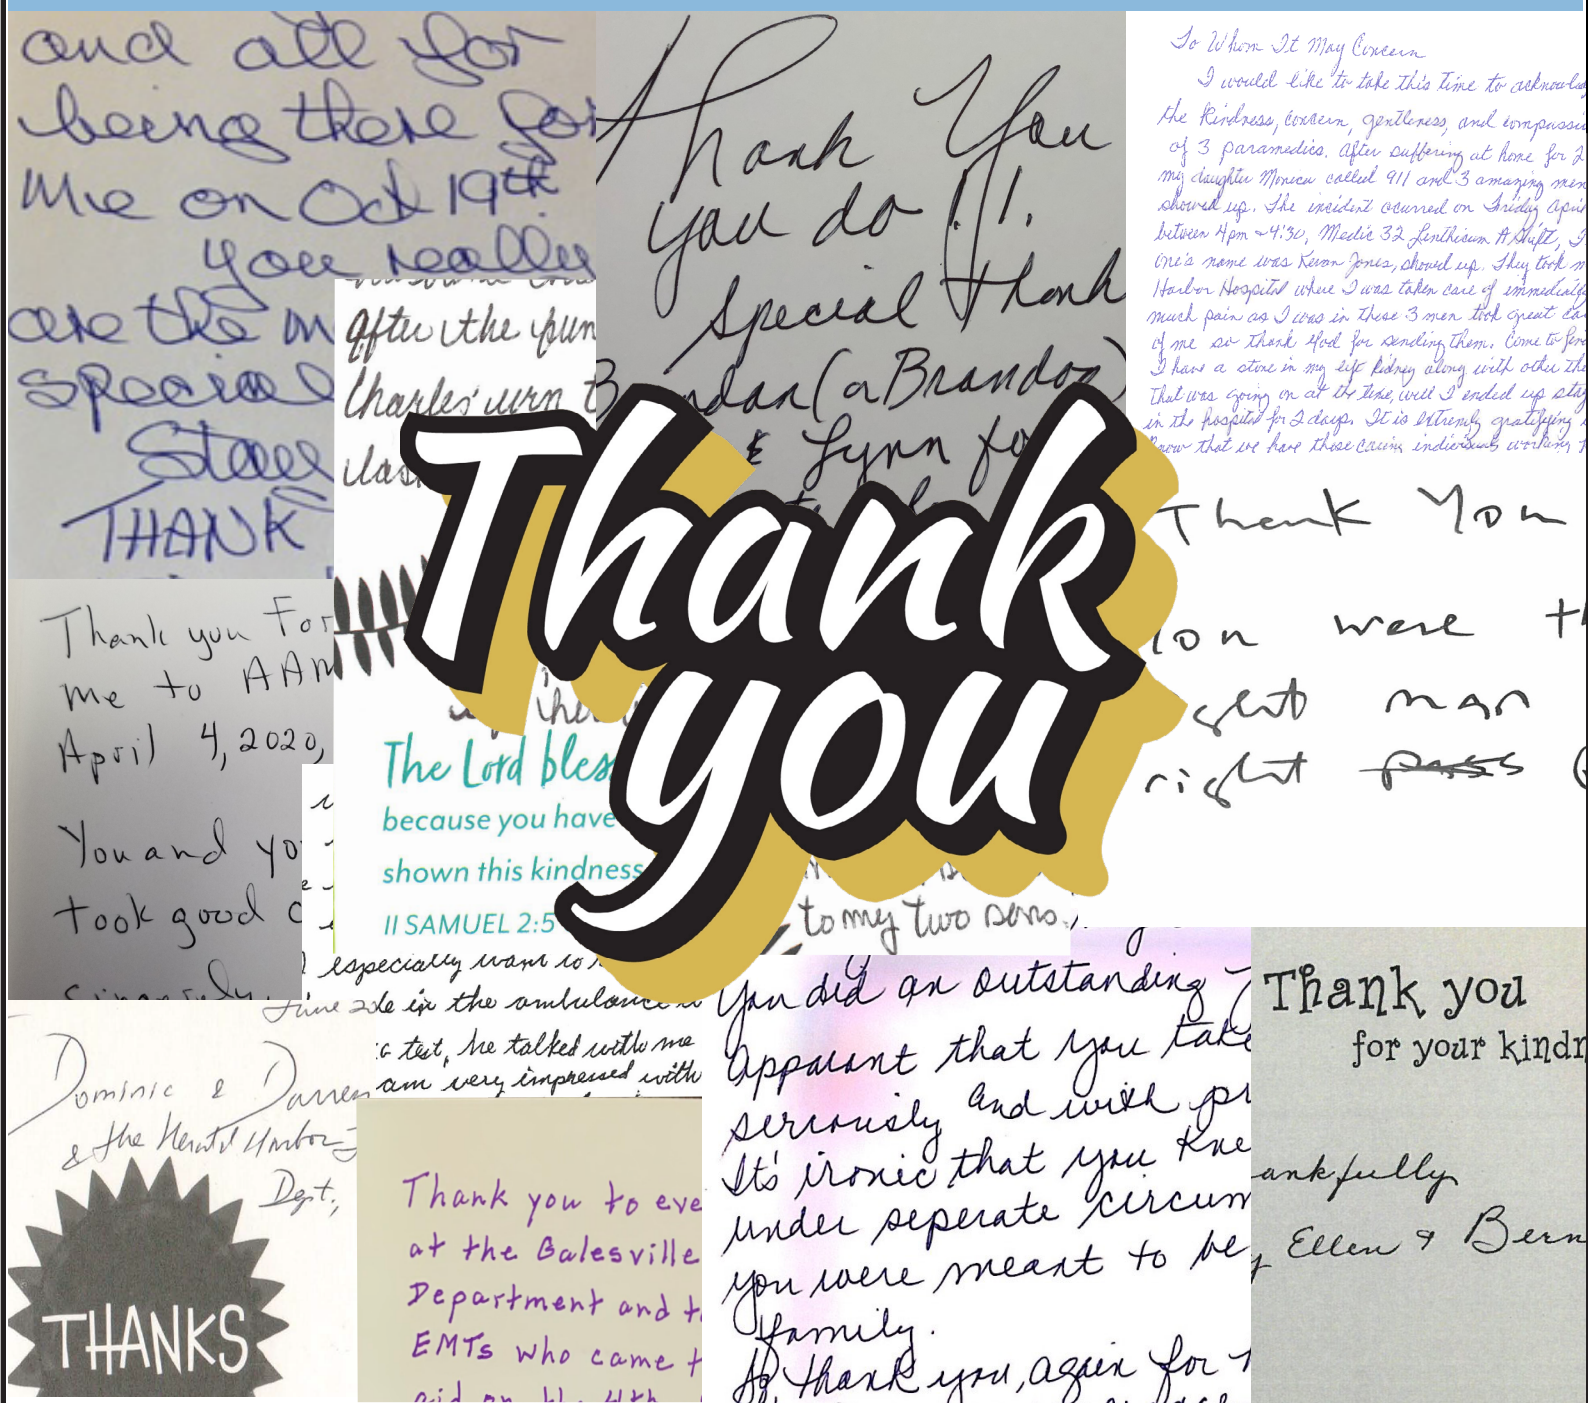 and all for
being there for
me on Oct 19th
you really
are the m
special
Stay
THANK
after the
Charles' urn
Thank You
you do !!
special thank
(or Brandon)
& Lynn fo
To Whom It May Concern
I would like to take this time to acknowled
the kindness, concern, gentleness, and compassi
of 3 paramedics. After suffering at home for 2
my daughter Monica called 911 and 3 amazing men
showed up. The incident ocurred on Friday April
between 4pm - 4:30, Medic 32 Linthicum A Shift,
One's name was Kevan Jones, showed up. They took m
Harbor Hospital where I was taken care of immediately
much pain as I was in these 3 men took great ca
of me so thank God for sending them. Come to find
I have a stone in my left kidney along with other thi
that was going on at the time, well I ended up stay
in the hospital for 2 days. It is extremly gratifying
know that we have these caring individuals working
Thank You
were th
man
right pass
Thank you For
me to AAM
April 4, 2020,
You and yo
took good c
Sincerely,
Thank
you
The Lord bles
because you have
shown this kindness
II SAMUEL 2:5
to my two sons.
especially want to
ride in the ambulance
test, he talked with me
am very impressed with
Dominic & Darren
& the Herald Harbor
Dept,
THANKS
Thank you to eve
at the Galesville
Department and t
EMTs who came t
4th
You did an outstanding
apparant that you take
seriously and with pr
It's ironic that you kne
under seperate circum
you were meant to be
family.
thank you, again for
Thank you
for your kindn
ankfully
Ellen & Bern